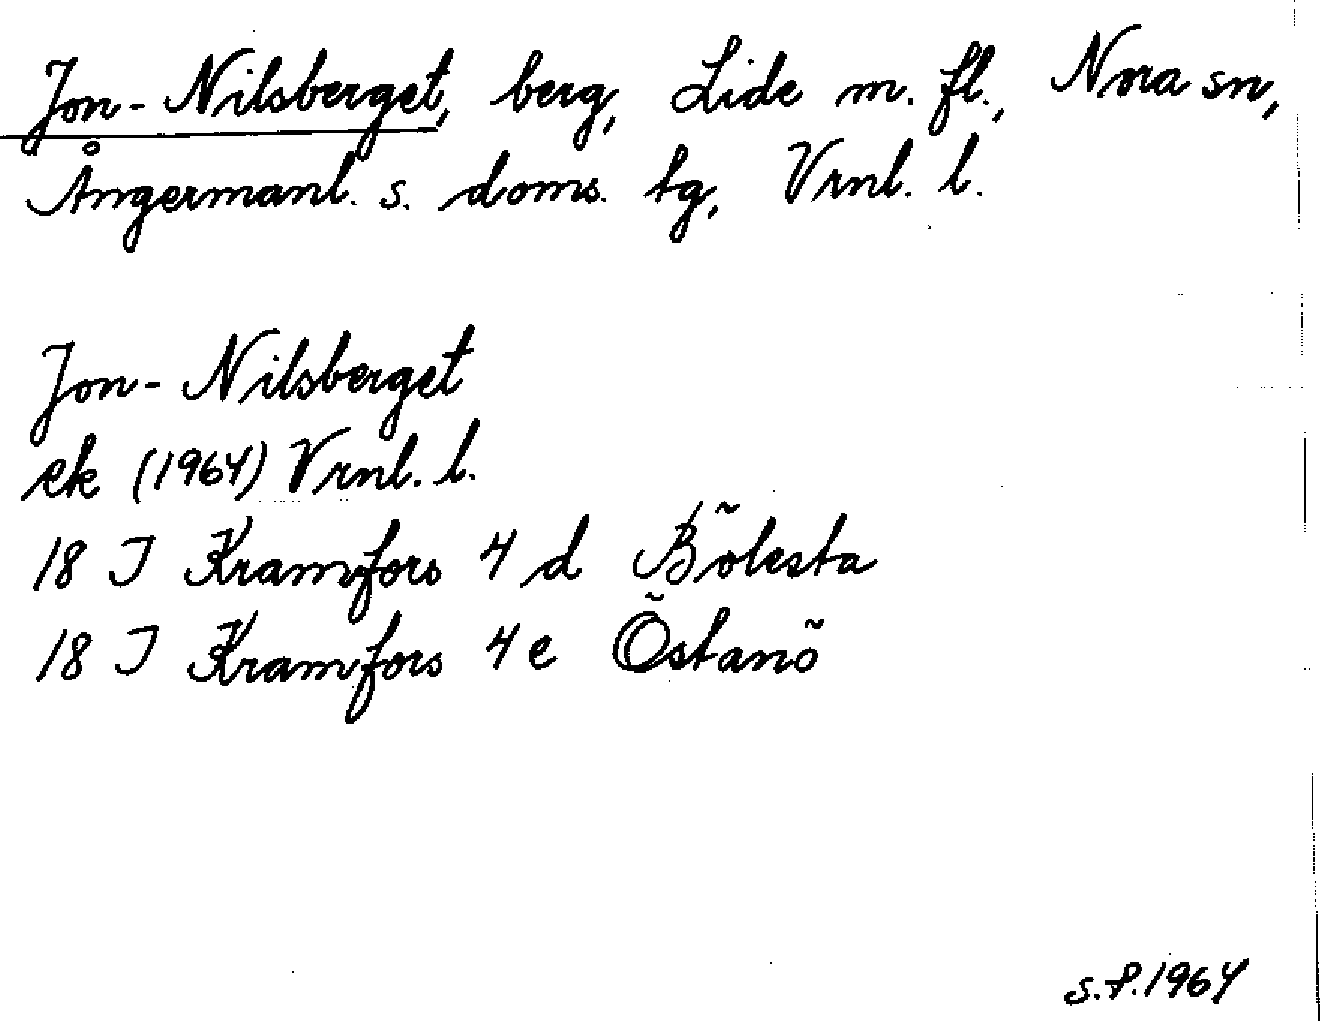 Jon-Nilsberget, berg, Lide m. fl., Nora sn,
Ångermanl. s. doms. tg, Vrnl. l.
Jon-Nilsberget
ek (1964) Vrnl. l.
18 J Kramfors 4 d Bölesta
18 J Kramfors 4 e Östanö
S.P. 1964